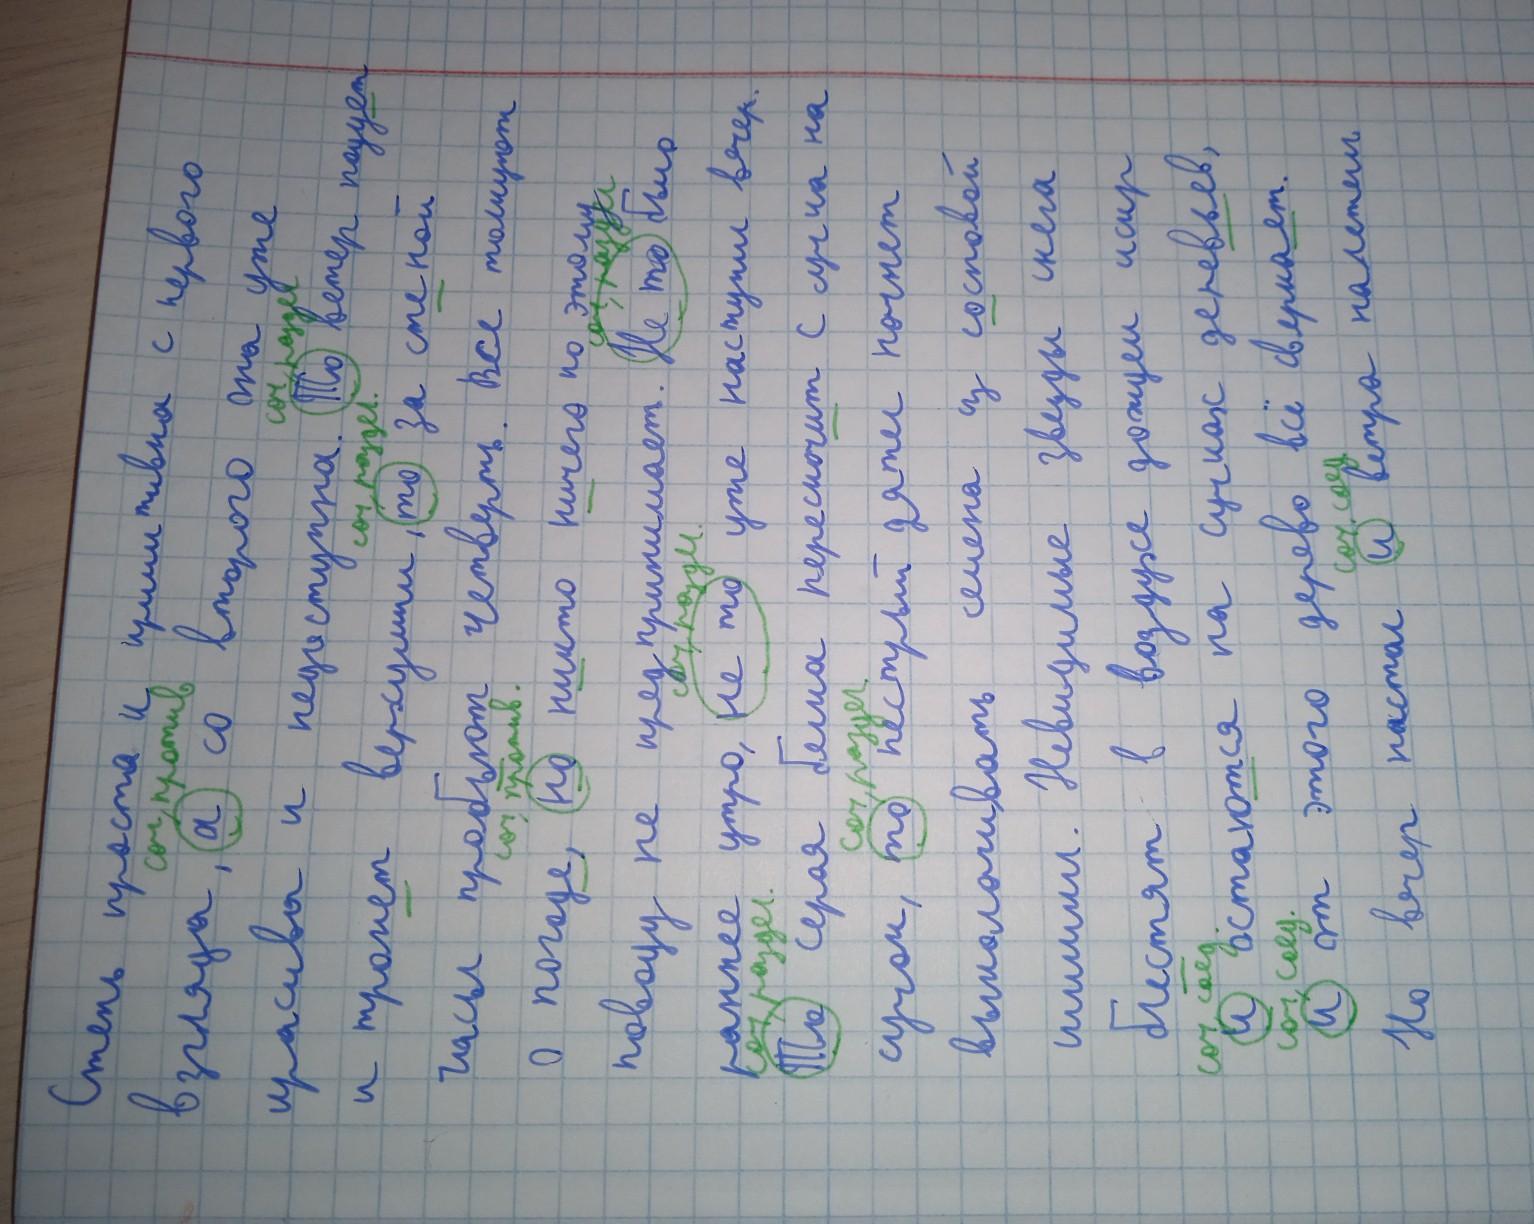 Степь проста и примитивна с первого
соч, против
взгляда, а со второго она уже
соч, раздел
красива и недоступна. То ветер подует
соч, раздел.
и тронет верхушки, то за стеной
часы пробьют четверть. Все толкуют
соч, против.
о погоде, но никто ничего по этому
соч, раздел
поводу не предпринимает. Не то было
соч, раздел.
раннее утро, не то уже наступил вечер.
соч, раздел.
То серая белка перескочит с сучка на
соч, раздел.
сучок, то пёстрый дятел начнет
выколачивать семена из сосновой
шишки. Невидимые звезды снега
блестят в воздухе дождём искр
соч, соед.
и остаются на сучках деревьев,
соч, соед.
и от этого дерево всё сверкает.
соч, соед
Но вечер настал и ветра налетели